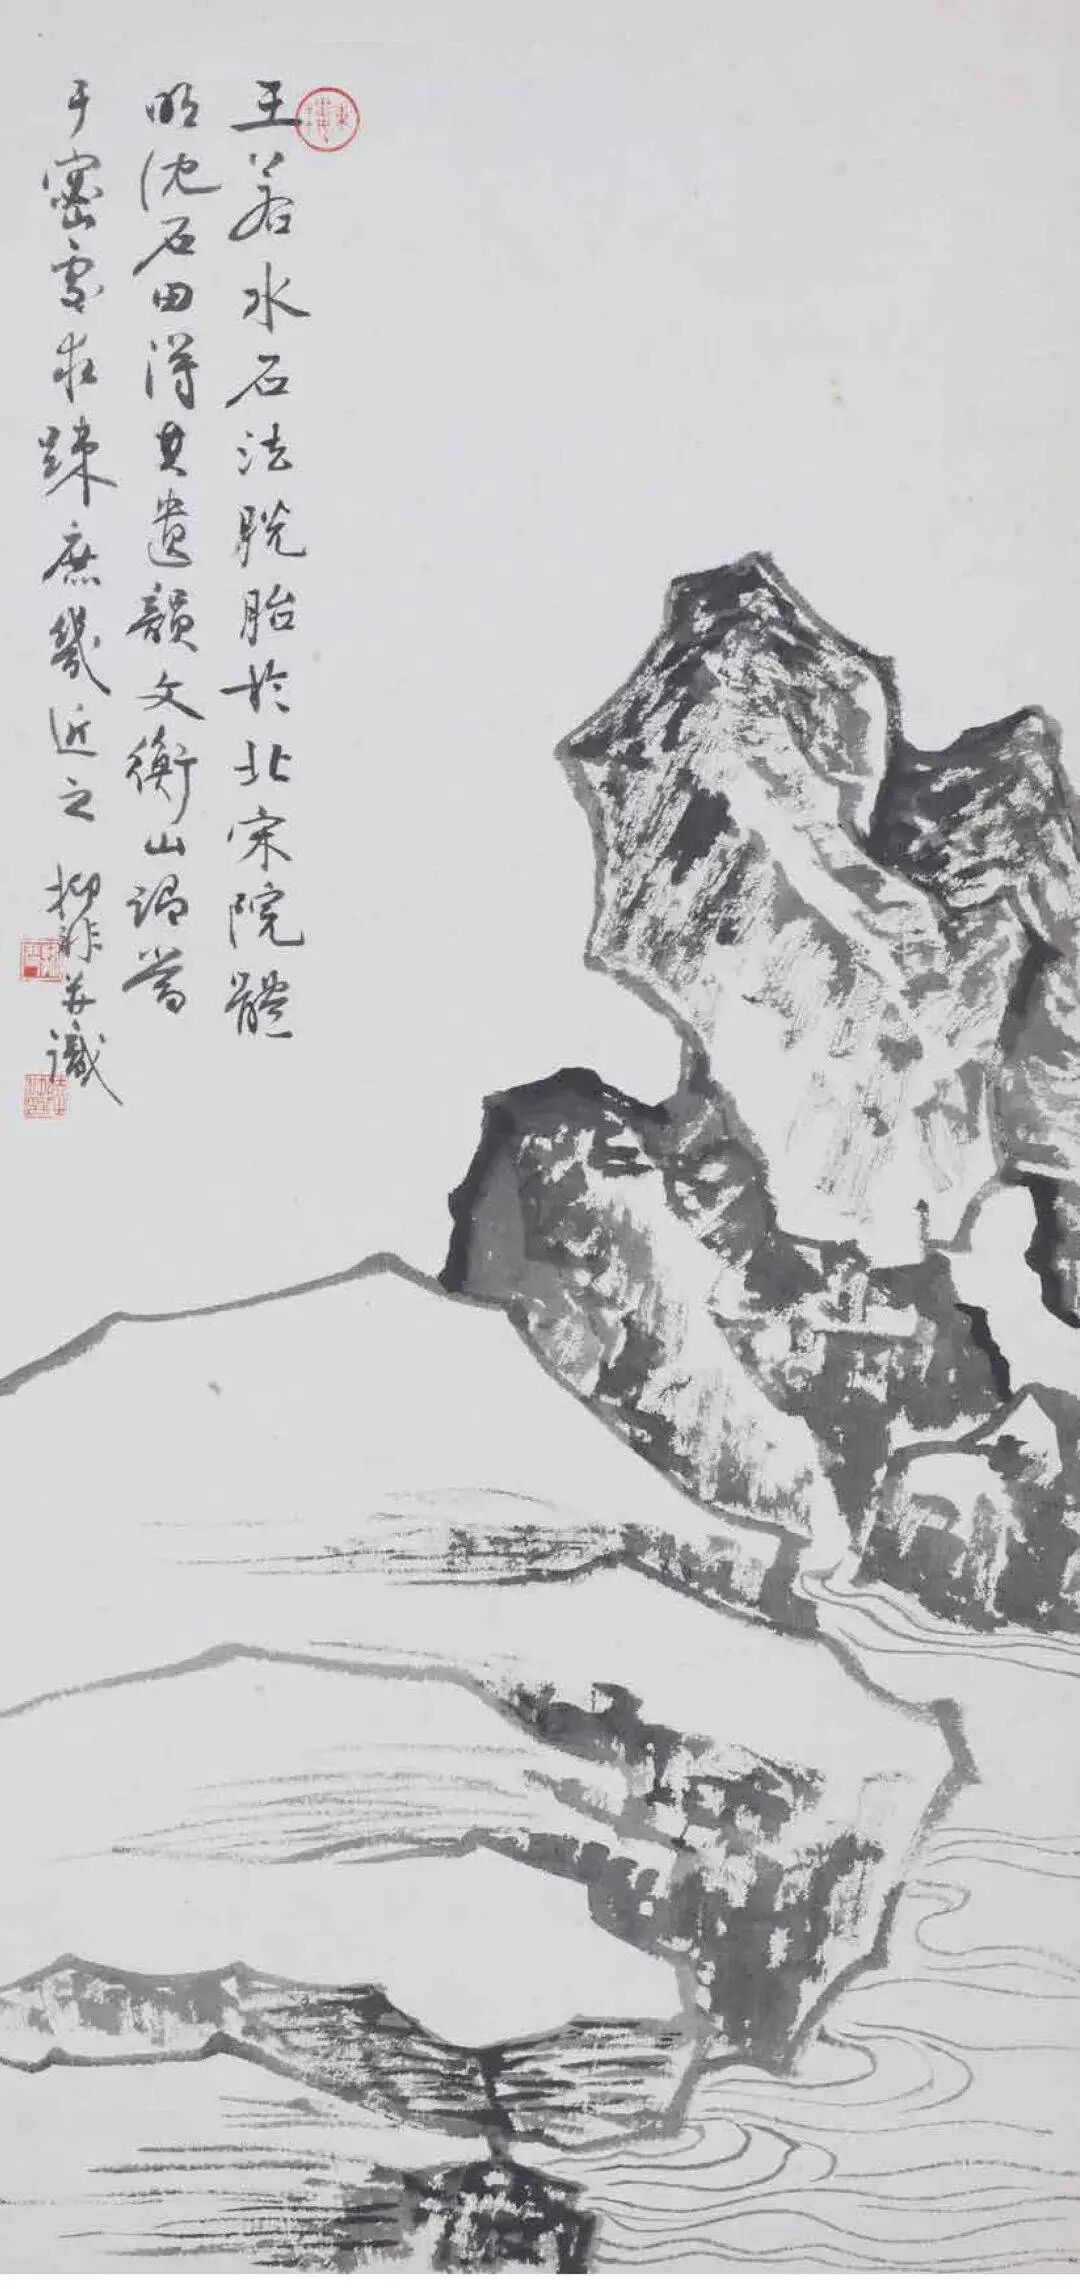 王若水石法脫胎於北宋院體
明沈石田得其遺韻文衡山謂當
于密處求疎庶幾近之 抑非并識